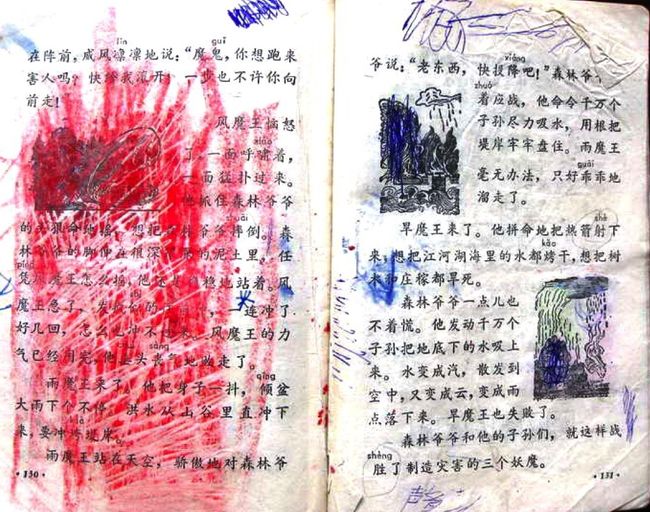 lǐn guǐ
在阵前，威风凛凛地说：“魔鬼，你想跑来
害人吗？快给我滚开！一步也不许你向
前走！
风魔王恼怒
xiào
了，一面呼啸着，
一面猛扑过来。
他抓住森林爷爷
shuāi
的头狠命地摇，想把森林爷爷摔倒。森
林爷爷的脚伸在很深的泥土里，任
píng
凭风魔王怎么摇，他还是稳地站着。风
魔王急了，发疯似的，一连冲了
好几回，怎么也冲不。风魔王的力
sàng
气已经用完，他垂头丧气地败走了。
qīng
雨魔王来了。他把身子一抖，倾盆
大雨下个不停。洪水从山谷里直冲下
来，要冲垮堤岸。
雨魔王站在天空，骄傲地对森林爷
·130·
xiáng
爷说：“老东西，快投降吧！”森林爷爷
zhuó
着应战，他命令千万个
子孙尽力吸水，用根把
堤岸牢牢盘住。雨魔王
guāi
毫无办法，只好乖乖地
溜走了。
shè
旱魔王来了。他拼命地把热箭射下
kǎo
来，想把江河湖海里的水都烤干，想把树
木和庄稼都旱死。
森林爷爷一点儿也
不着慌。他发动千万个
子孙把地底下的水吸上
来。水变成汽，散发到
空中，又变成云，变成雨
点落下来。旱魔王也失败了。
森林爷爷和他的子孙们，就这样战
shèng
胜了制造灾害的三个妖魔。
·131·